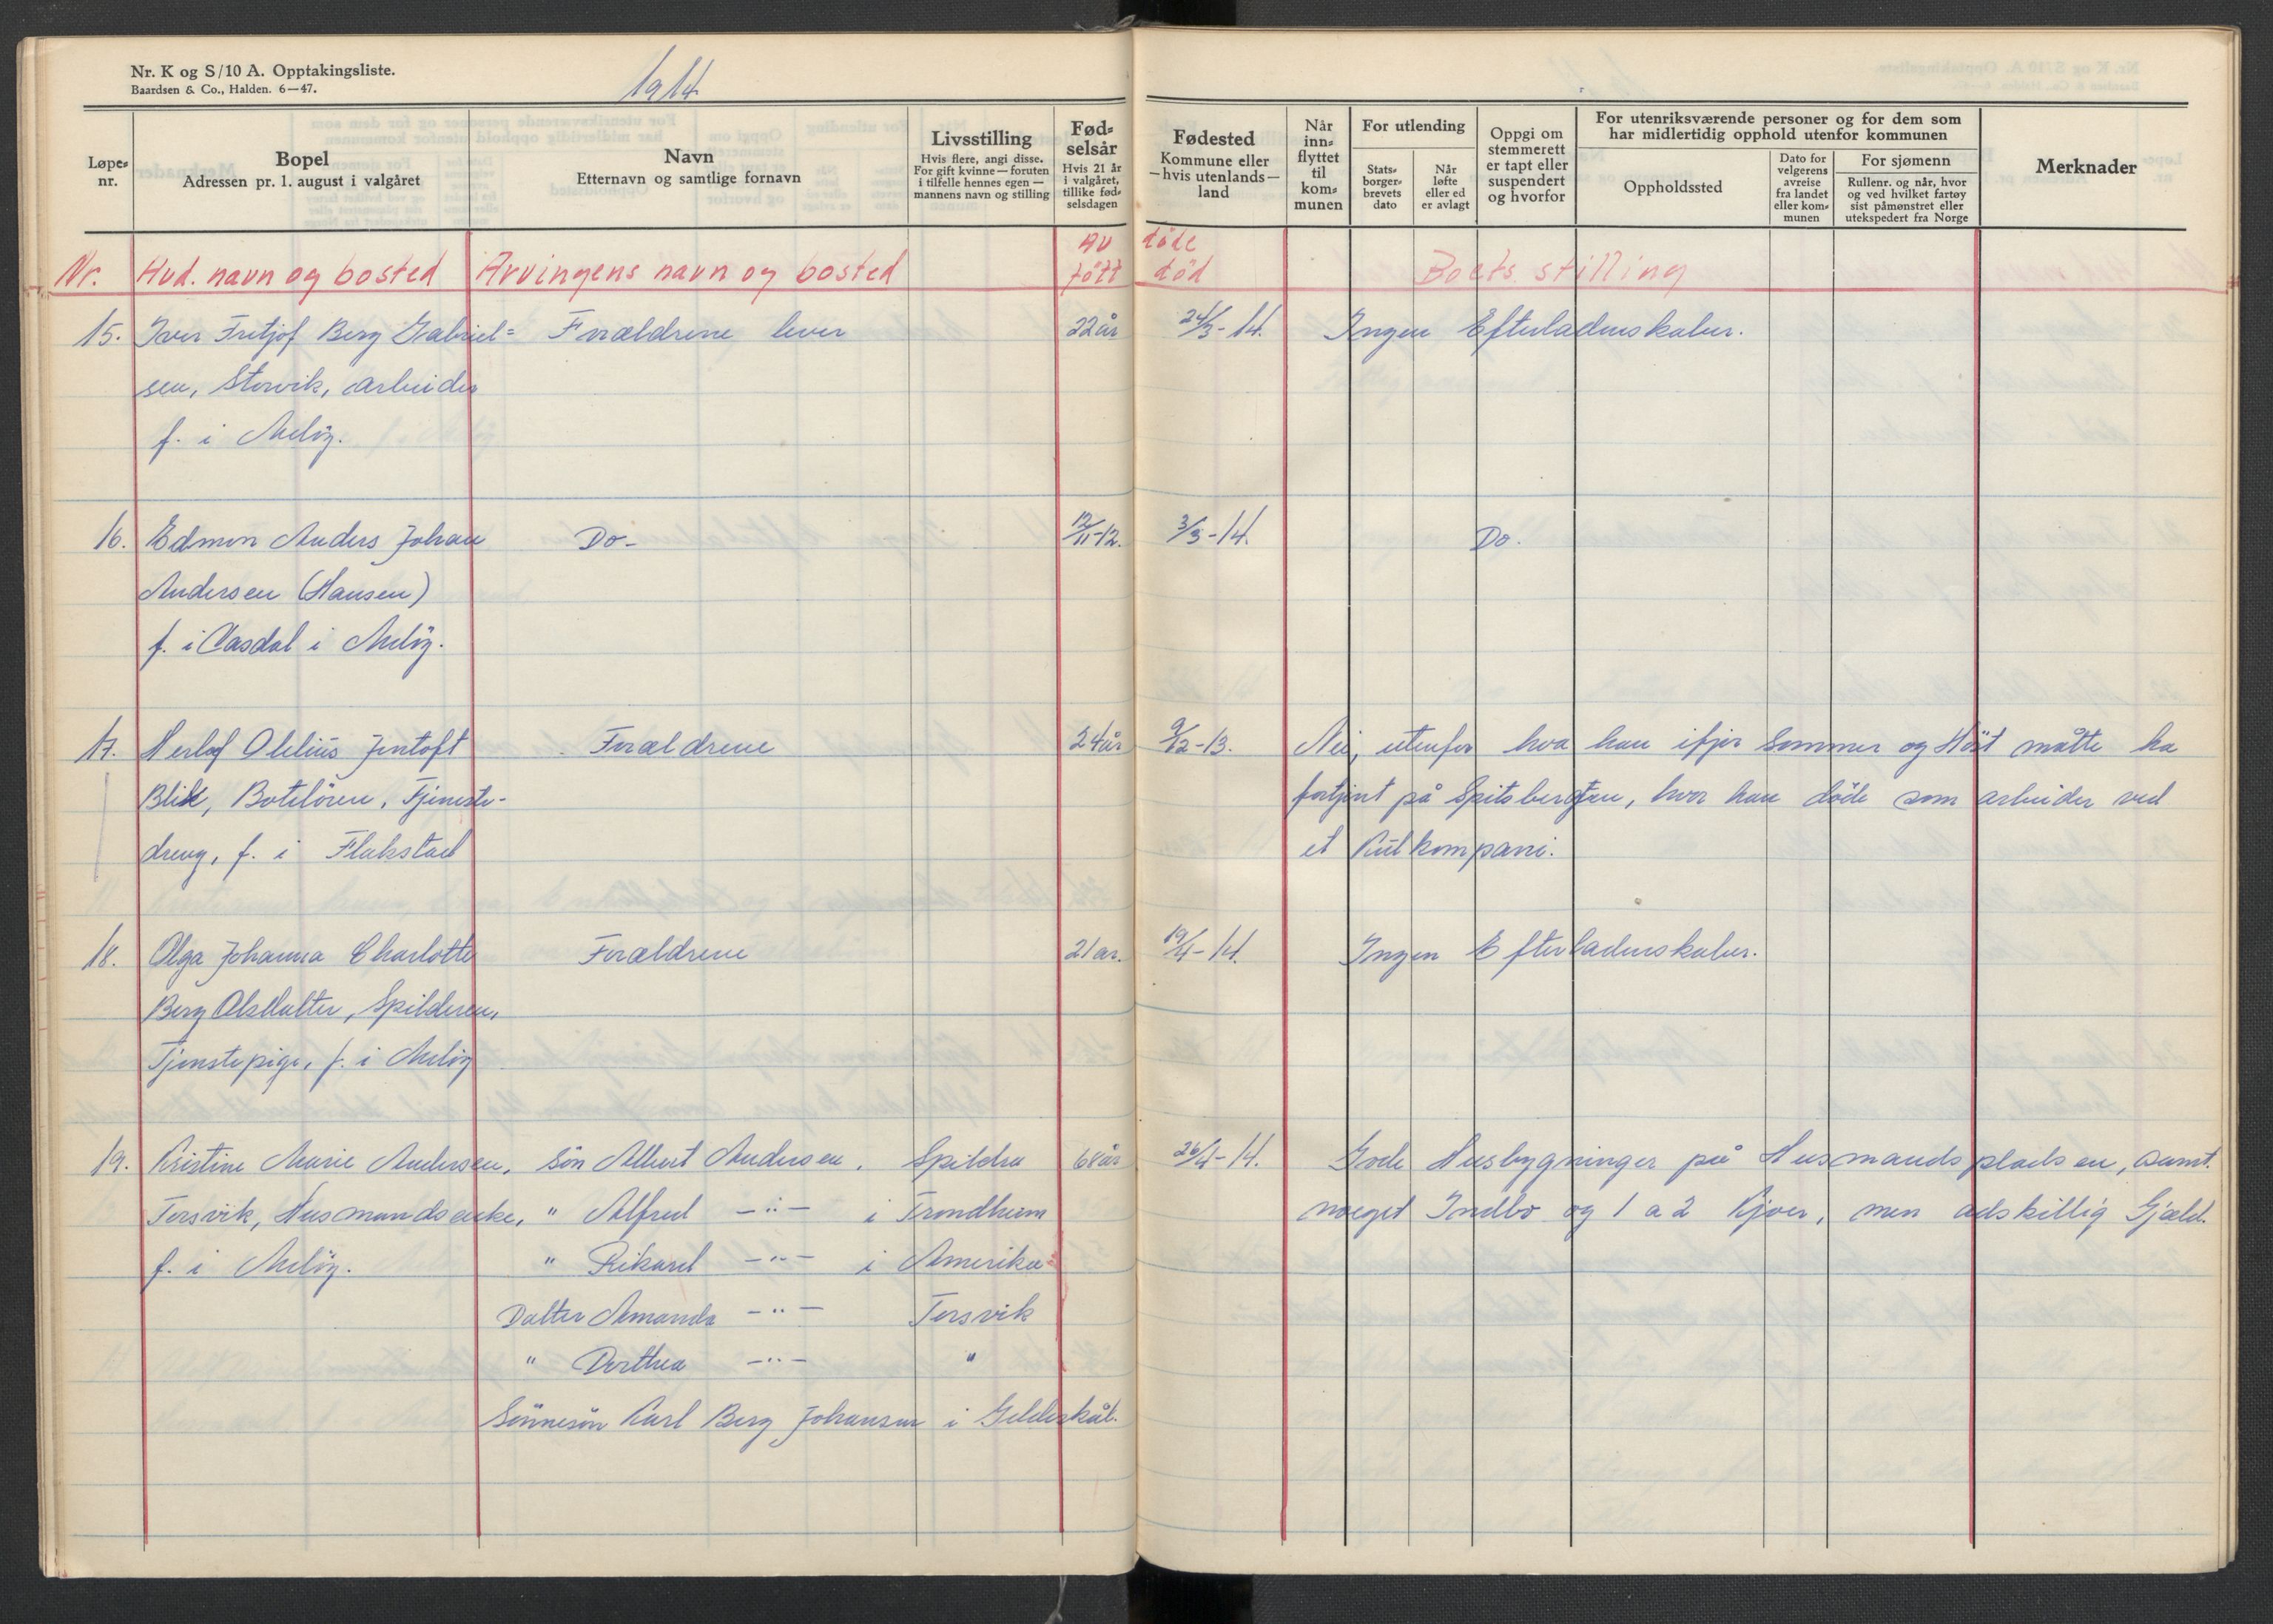 Nr. K og S/10 A. Opptakingsliste.
Baardsen & Co., Halden. 6—47.
1914
Løpe-nr.
Bopel
Adressen pr. 1. august i valgåret
Navn
Etternavn og samtlige fornavn
Livsstilling
Hvis flere, angi disse.
For gift kvinne — foruten
i tilfelle hennes egen —
mannens navn og stilling
Fød-
selsår
Hvis 21 år
i valgåret,
tillike fød-
selsdagen
Fødested
Kommune eller
— hvis utenlands —
land
Når
inn-
flyttet
til
kom-
munen
For utlending
Stats-
borger-
brevets
dato
Når
løfte
eller ed
er avlagt
Oppgi om
stemmerett
er tapt eller
suspendert
og hvorfor
For utenriksværende personer og for dem som
har midlertidig opphold utenfor kommunen
Oppholdssted
Dato for
velgerens
avreise
fra landet
eller kom-
munen
For sjømenn
Rullenr. og når, hvor
og ved hvilket fartøy
sist påmønstret eller
utekspedert fra Norge
Merknader
Av døde
Nr. Avd. navn og bosted Arvingens navn og bosted født død Boets stilling
15. Iver Fritjof Berg Gabriel= Forældrene lever 22 år 24/3-14. Ingen Efterladenskaber.
sen, Storvik, arbeider
f. i Meløy.
16. Edmon Anders Johan Do- 12/11-12. 3/3-14. Do.
Andersen (Hansen)
f. i Åasdal i Meløy.
17. Herlof Olelius Jentoft Forældrene 24 år 9/12-13. Nei, utenfor hva han ifjor Sommer og Høst måtte ha
Blix, Boteløren, Tjeneste- fortjent på Spitsbergen, hvor han døde som arbeider ved
dreng, f. i Flakstad et Kulkompani.
18. Olga Johanna Charlotte Forældrene 21 år. 19/4-14. Ingen Efterladenskaber.
Berg Olsdatter, Spilderen,
Tjenstepige, f. i Meløy
19. Kristine Marie Andersen, Søn Albert Andersen. Spildra 68 år 26/4-14. Gode Husbygninger på Husmandspladsen, samt
Torsvik, Husmandsenke, " Alfred -"- i Trondheim noget Indbo og 1 a 2 Kjøer, men adskillig Gjæld.
f. i Meløy. " Rikard -"- i Amerika
Datter Amanda -"- Torsvik
" Dorthea -"- "
Sønnesøn Karl Berg Johansen i Gildeskål.